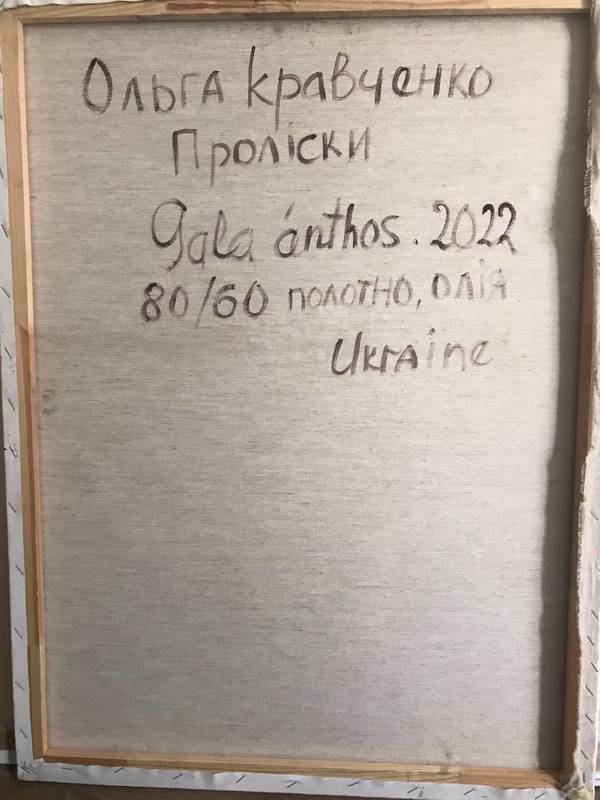 Ольга Кравченко
Проліски
Gala ánthos. 2022
80/60 полотно, олія
Ukraine